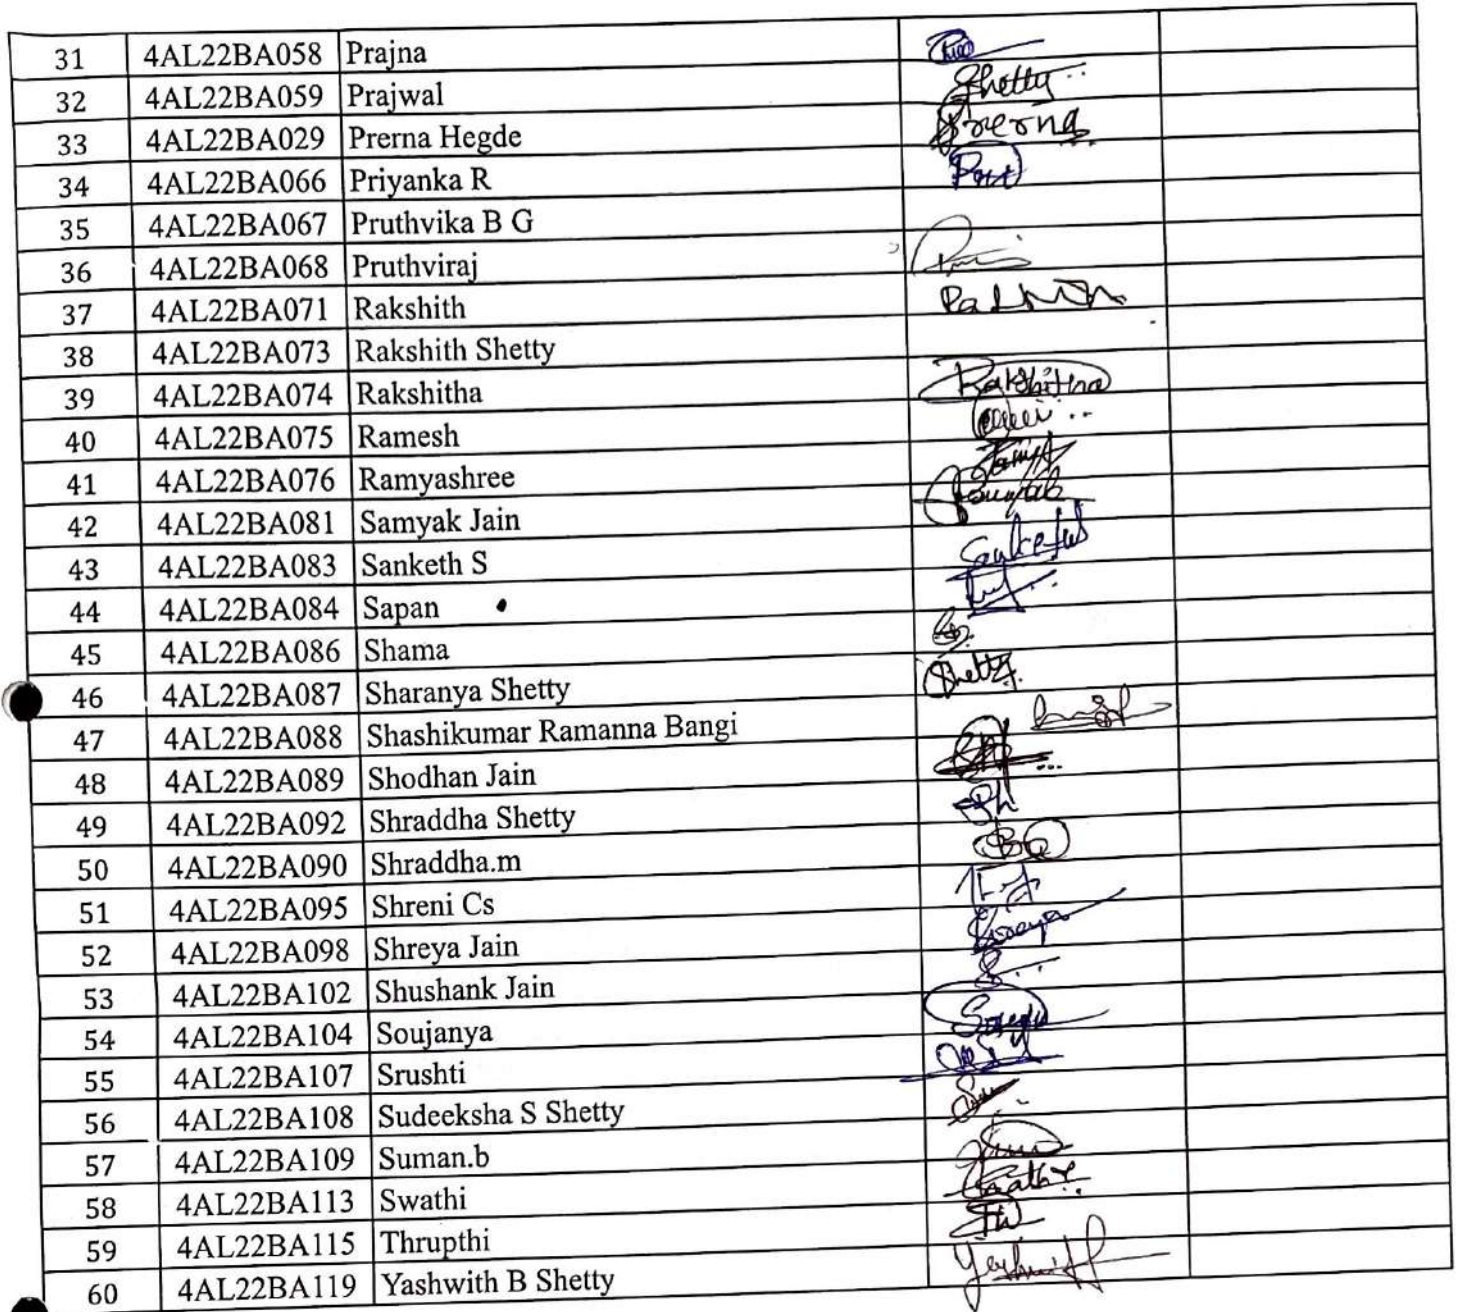 31 4AL22BA058 Prajna
32 4AL22BA059 Prajwal Shetty
33 4AL22BA029 Prerna Hegde Prerna
34 4AL22BA066 Priyanka R
35 4AL22BA067 Pruthvika B G
36 4AL22BA068 Pruthviraj
37 4AL22BA071 Rakshith
38 4AL22BA073 Rakshith Shetty
39 4AL22BA074 Rakshitha Rakshitha
40 4AL22BA075 Ramesh
41 4AL22BA076 Ramyashree
42 4AL22BA081 Samyak Jain
43 4AL22BA083 Sanketh S
44 4AL22BA084 Sapan
45 4AL22BA086 Shama
46 4AL22BA087 Sharanya Shetty Shetty
47 4AL22BA088 Shashikumar Ramanna Bangi
48 4AL22BA089 Shodhan Jain
49 4AL22BA092 Shraddha Shetty
50 4AL22BA090 Shraddha.m
51 4AL22BA095 Shreni Cs
52 4AL22BA098 Shreya Jain Shreya
53 4AL22BA102 Shushank Jain
54 4AL22BA104 Soujanya
55 4AL22BA107 Srushti
56 4AL22BA108 Sudeeksha S Shetty
57 4AL22BA109 Suman.b
58 4AL22BA113 Swathi
59 4AL22BA115 Thrupthi
60 4AL22BA119 Yashwith B Shetty